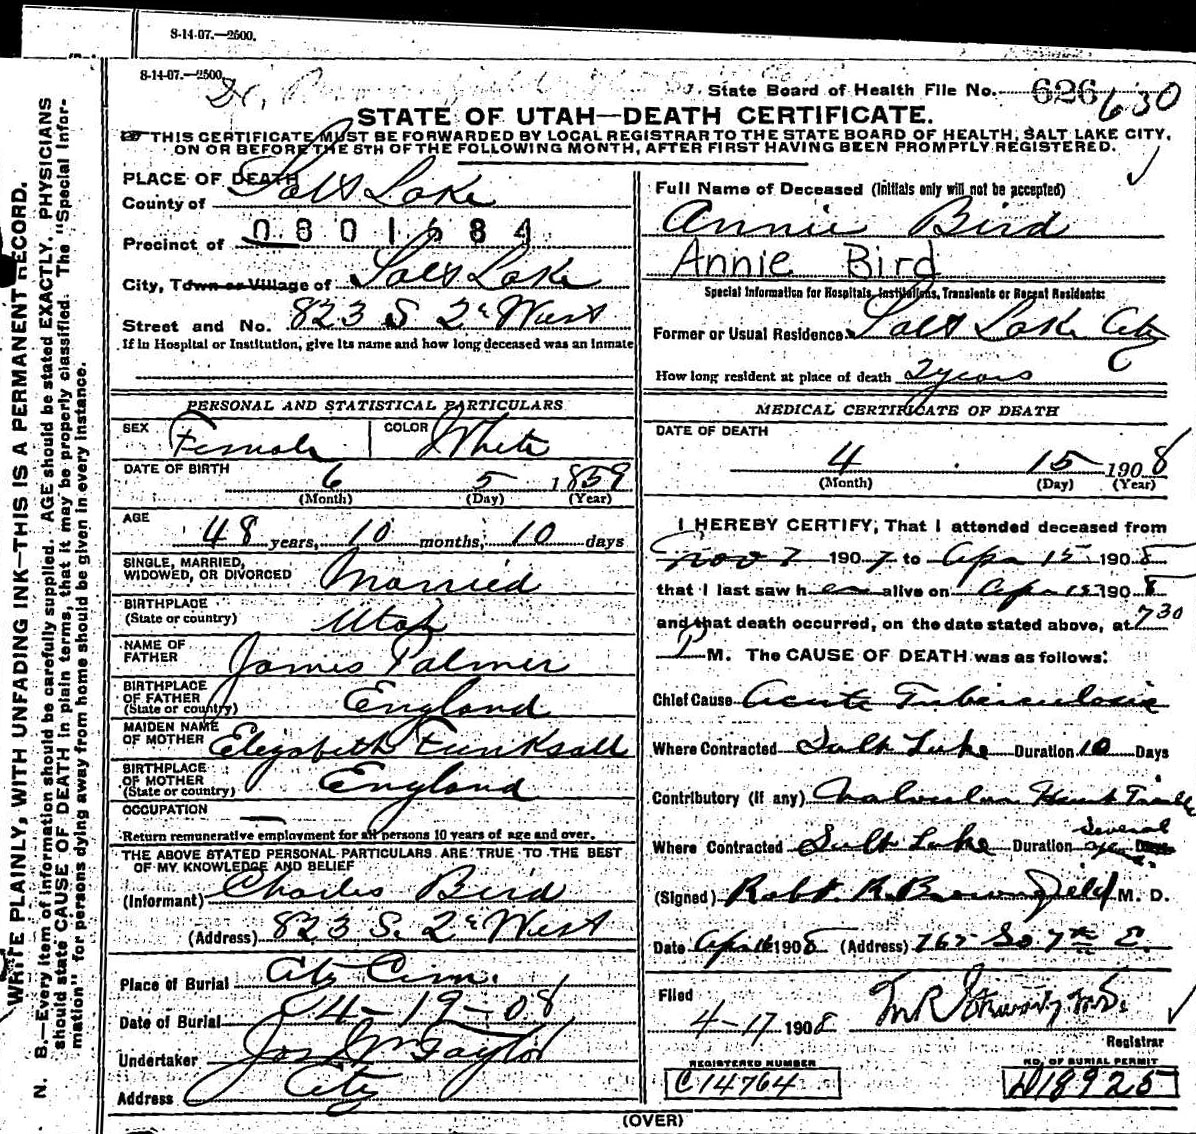 8-14-07.—2500.
8-14-07.—2500.
Dr.
State Board of Health File No. 626 630
STATE OF UTAH—DEATH CERTIFICATE.
THIS CERTIFICATE MUST BE FORWARDED BY LOCAL REGISTRAR TO THE STATE BOARD OF HEALTH, SALT LAKE CITY,
ON OR BEFORE THE 5TH OF THE FOLLOWING MONTH, AFTER FIRST HAVING BEEN PROMPTLY REGISTERED.
WRITE PLAINLY, WITH UNFADING INK—THIS IS A PERMANENT RECORD.
N. B.—Every item of information should be carefully supplied. AGE should be stated EXACTLY. PHYSICIANS
should state CAUSE OF DEATH in plain terms, that it may be properly classified. The "Special Infor-
mation" for persons dying away from home should be given in every instance.
PLACE OF DEATH
County of Salt Lake
Precinct of 0801684
City, Town or Village of Salt Lake
Street and No. 823 S 2d West
If in Hospital or Institution, give its name and how long deceased was an inmate
PERSONAL AND STATISTICAL PARTICULARS
SEX Female COLOR White
DATE OF BIRTH
6 5 1859
(Month) (Day) (Year)
AGE
48 years, 10 months, 10 days
SINGLE, MARRIED,
WIDOWED, OR DIVORCED Married
BIRTHPLACE
(State or country) Utah
NAME OF
FATHER James Palmer
BIRTHPLACE
OF FATHER
(State or country) England
MAIDEN NAME
OF MOTHER Elizabeth
BIRTHPLACE
OF MOTHER
(State or country) England
OCCUPATION —
Return remunerative employment for all persons 10 years of age and over.
THE ABOVE STATED PERSONAL PARTICULARS ARE TRUE TO THE BEST
OF MY KNOWLEDGE AND BELIEF
(Informant) Charles Bird
(Address) 823 S. 2d West
Place of Burial City Cem.
Date of Burial 04-19-08
Undertaker Jos Wm Taylor
Address City
Full Name of Deceased (Initials only will not be accepted)
Annie Bird
Annie Bird
Special Information for Hospitals, Institutions, Transients or Recent Residents:
Former or Usual Residence Salt Lake City
How long resident at place of death 2 years
MEDICAL CERTIFICATE OF DEATH
DATE OF DEATH
4 15 1908
(Month) (Day) (Year)
I HEREBY CERTIFY, That I attended deceased from
Nov 7 1907 to Apr 15 1908
that I last saw her alive on Apr 15 1908
and that death occurred, on the date stated above, at 730
P M. The CAUSE OF DEATH was as follows:
Chief Cause Acute Tuberculosis
Where Contracted Salt Lake Duration 10 Days
Contributory (if any) Valvular Heart Trouble
Where Contracted Salt Lake Duration Several years Days
(Signed) Robt. R. Brownfield M. D.
Date Apr 16 1908 (Address) 765 So 7th E.
Filed
4-17 1908
Registrar
REGISTERED NUMBER
C14764
NO. OF BURIAL PERMIT
D18925
(OVER)